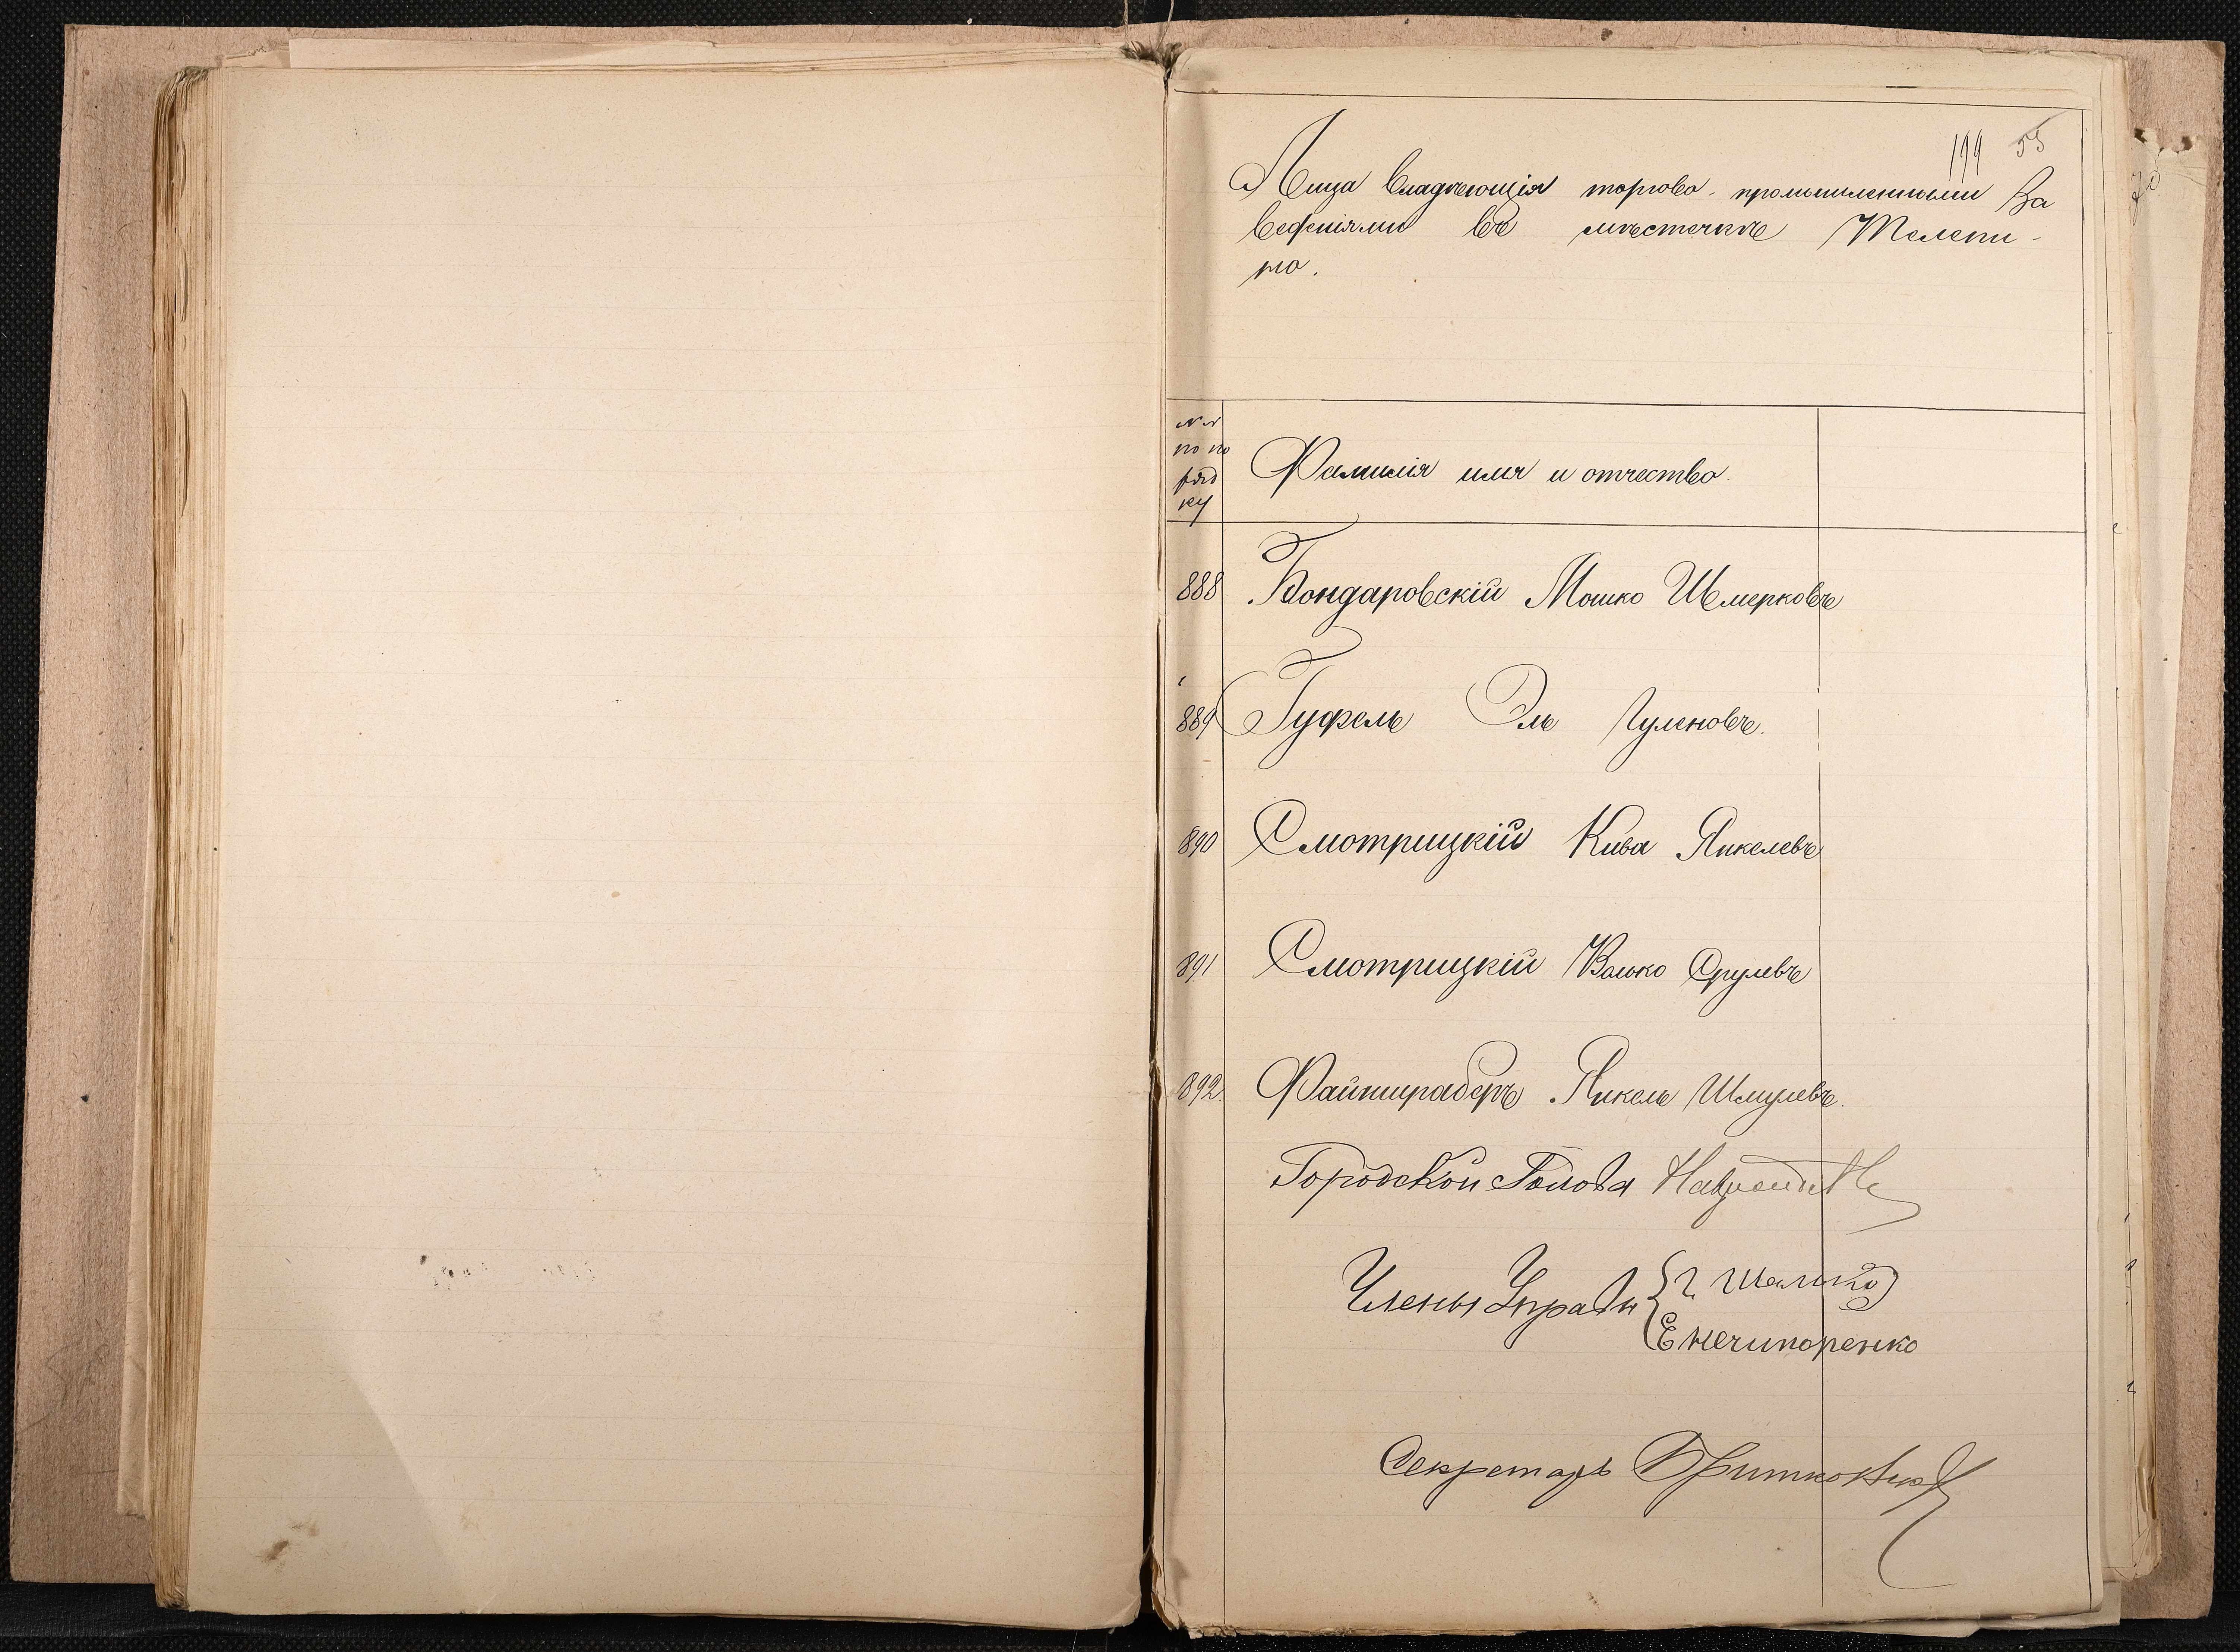 199 55
Лица владѣющія торгово-промышленными за
веденіями въ мѣстечкѣ Телепи-
но.
№№
по по
ряд
ку
Фамилія имя и отчество.
888 Бондаровскій Мошко Шмерковъ
889 Гуфель Эль
890 Смотрицкій Кива Янкелевъ
891 Смотрицкій Волько Срулевъ
892. Файншраберъ Янкель Шмулевъ.
Городской Голова
Члены Управы
Е Нечипоренко
Секретарь